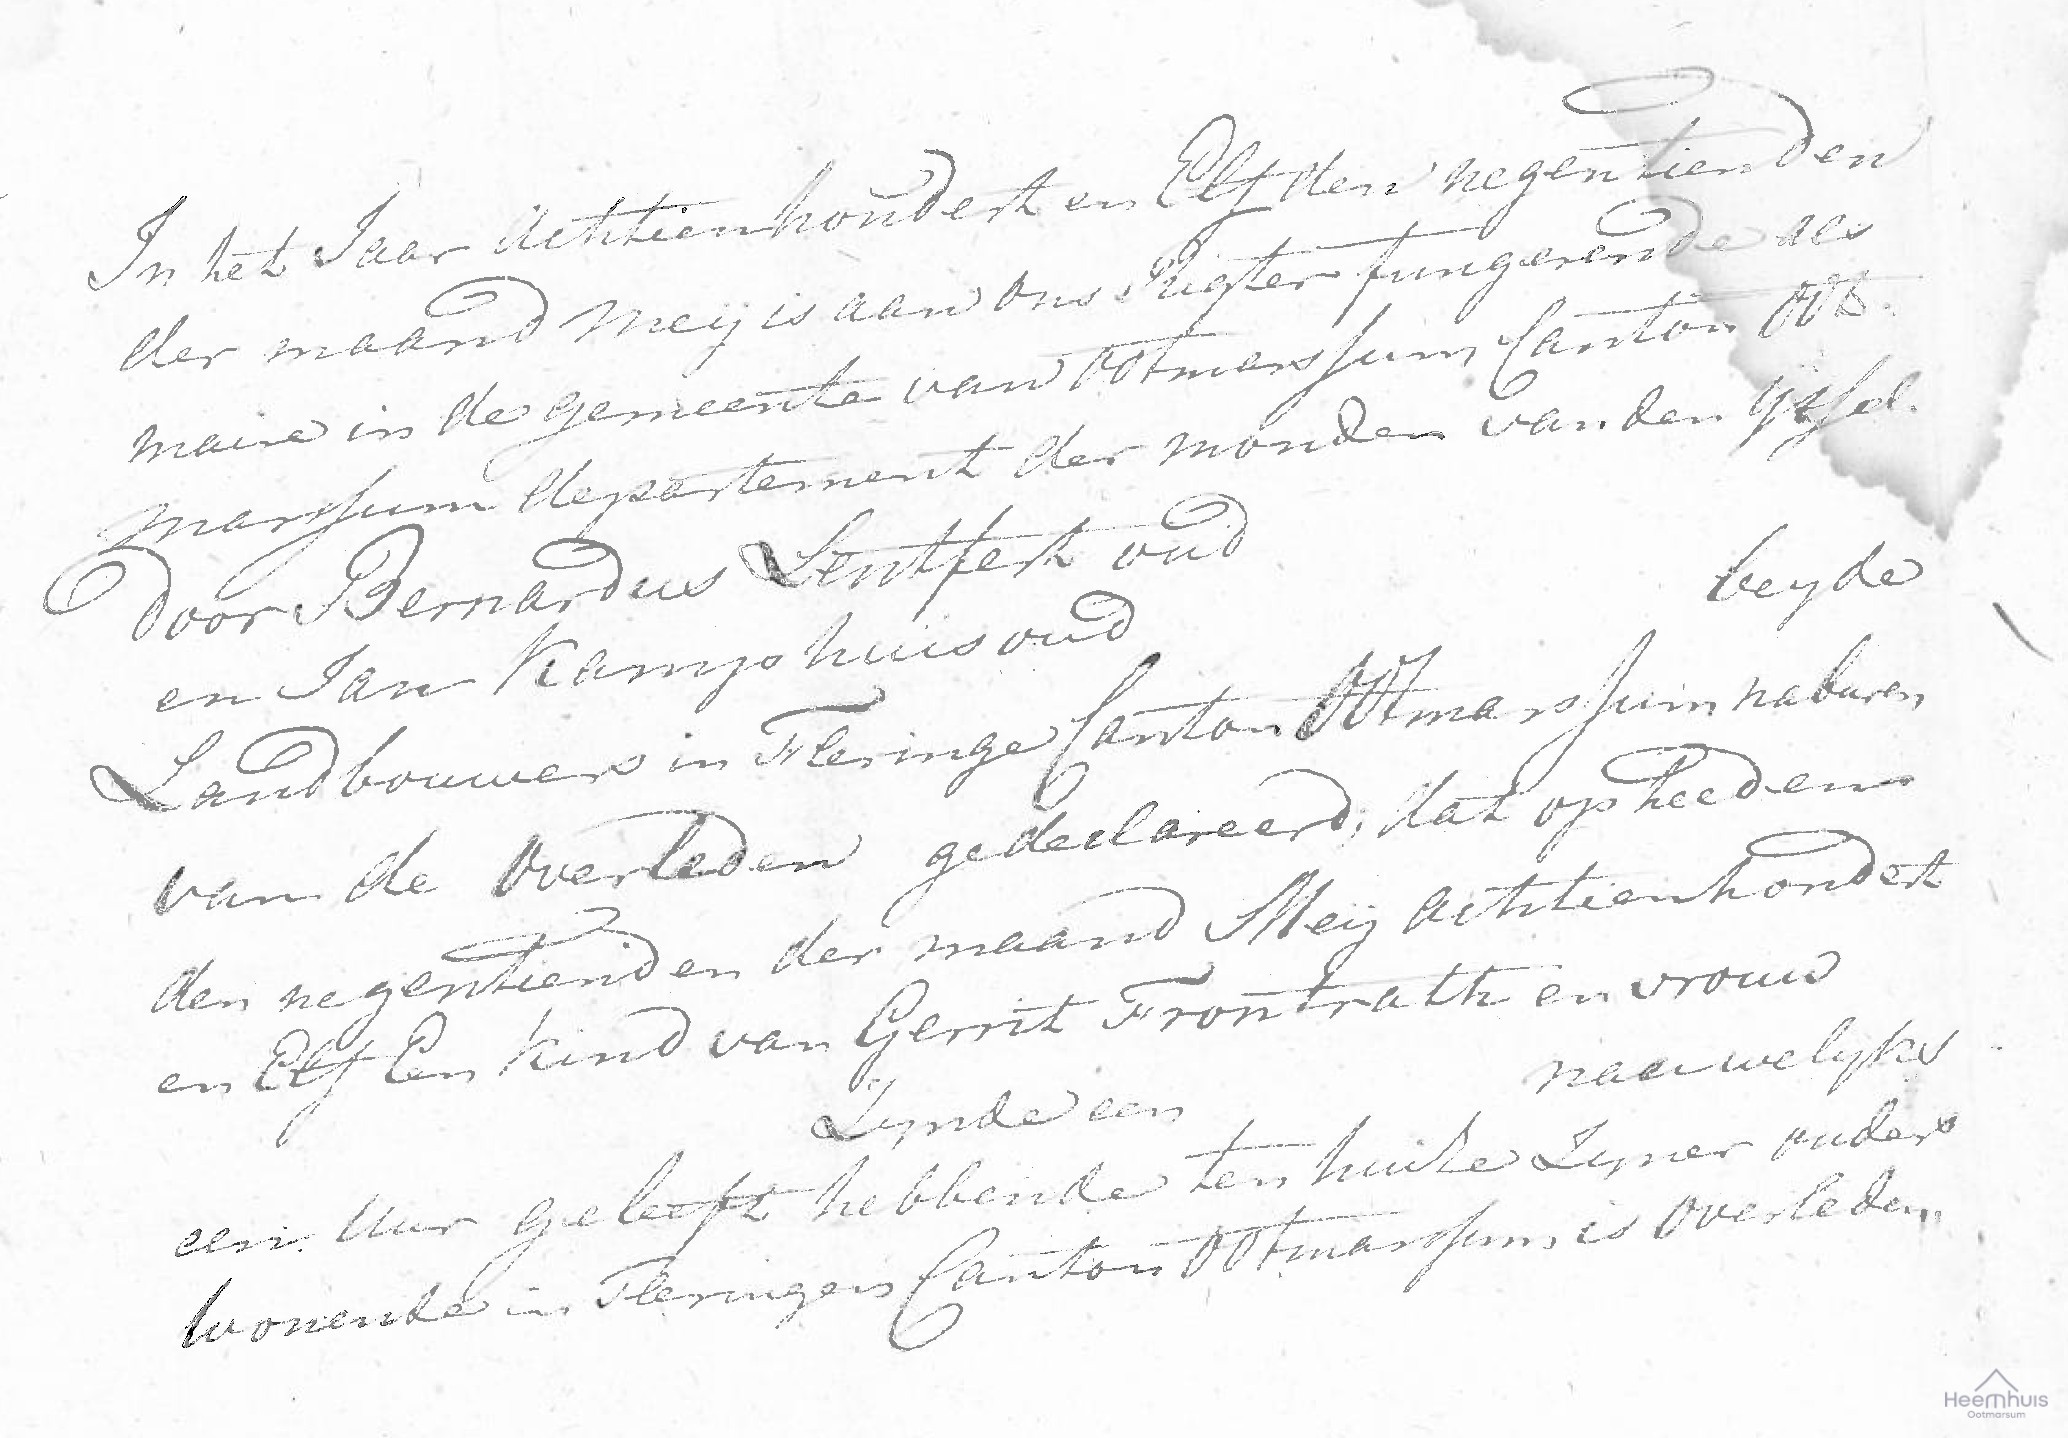 In het Jaar Achttienhondert en Elf den negentienden
der maand Meij is aan ons Rigter fungerende als
maire in de gemeente van Ootmarssum Canton Oot-
marssum departement der monden van den Yssel.
Door Bernardus Lentfert oud
en Jan Kamphuis oud beyde
Landbouwers in Fleringe Canton Ootmarssum naburen
van de Overleden gedeclareerd; dat op heeden
den negentienden der maand Meij Achttienhondert
en Elf Een Kind van Gerrit Frontrath en vrouw
Zynde een naauwelyks
een Uur geleeft hebbende ten huize Zyner ouders
wonende in Fleringen Canton Ootmarssum is Overleden
Heemhuis
Ootmarsum